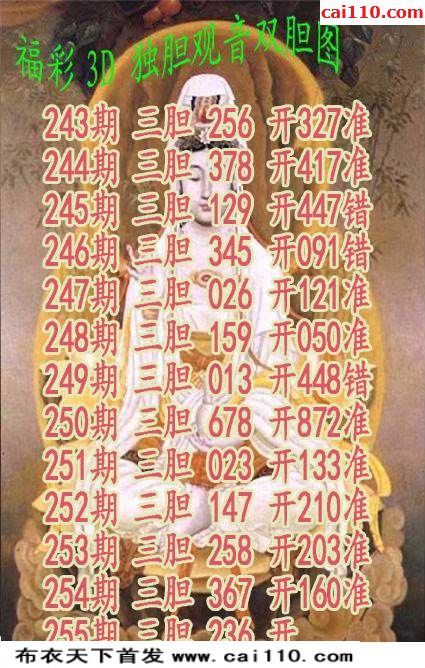 cai110.com
福彩3D 独胆观音双胆图
243期 三胆 256 开327准
244期 三胆 378 开417准
245期 三胆 129 开447错
246期 三胆 345 开091错
247期 三胆 026 开121准
248期 三胆 159 开050准
249期 三胆 013 开448错
250期 三胆 678 开872准
251期 三胆 023 开133准
252期 三胆 147 开210准
253期 三胆 258 开203准
254期 三胆 367 开160准
255期 三胆 236 开
布衣天下首发 www.cai110.com